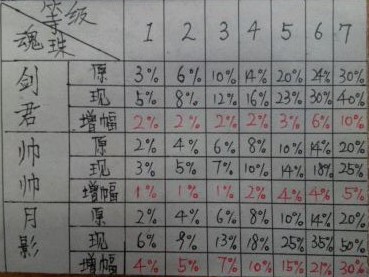 等级
魂珠 1 2 3 4 5 6 7
剑君 原 3% 6% 10% 14% 20% 24% 30%
现 5% 8% 12% 16% 23% 30% 40%
增幅 2% 2% 2% 2% 3% 6% 10%
帅帅 原 2% 4% 6% 8% 10% 14% 20%
现 3% 5% 7% 10% 14% 18% 25%
增幅 1% 1% 1% 2% 4% 4% 5%
月影 原 2% 4% 6% 8% 10% 14% 20%
现 6% 9% 13% 18% 25% 35% 50%
增幅 4% 5% 7% 10% 15% 21% 30%